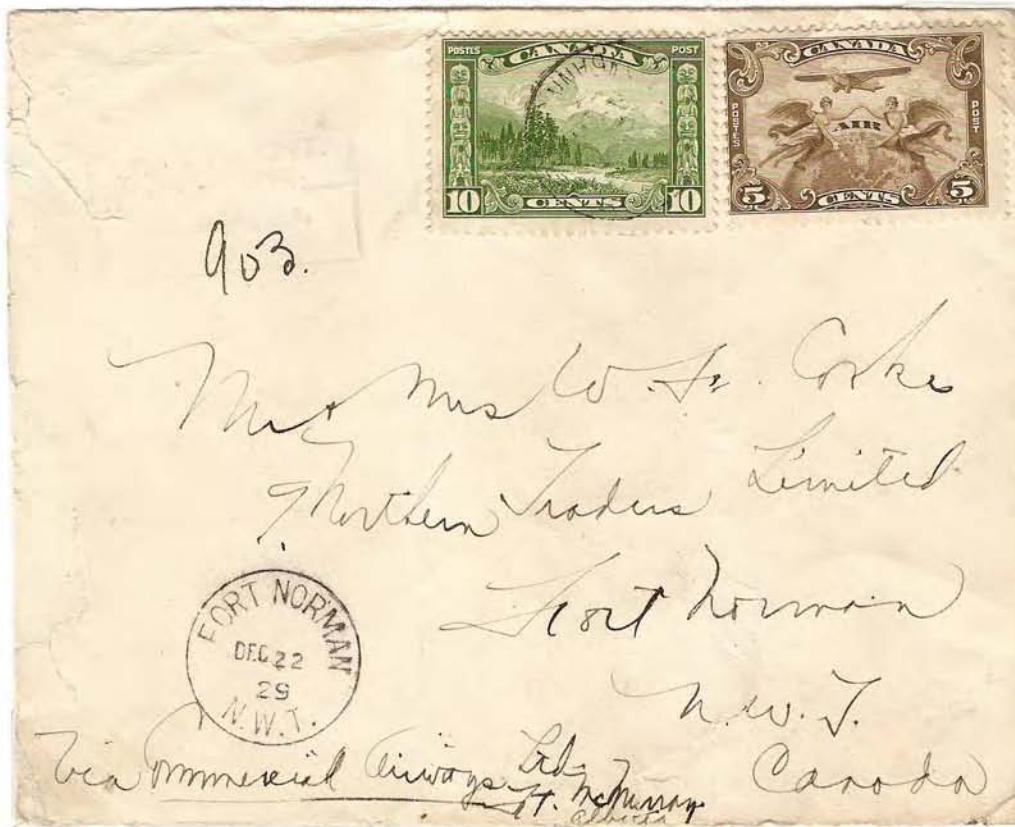 POSTES CANADA POST
10 CENTS 10
CANADA
POSTES AIR POST
5 CENTS 5
903.
Mr & Mrs W. Fr. Cooke
Northern Traders Limited
Fort Norman
N.W.T.
Canada
FORT NORMAN
DEC 22
29
N.W.T.
Via Commercial Airways Ltd.
Ft. McMurray
Alberta